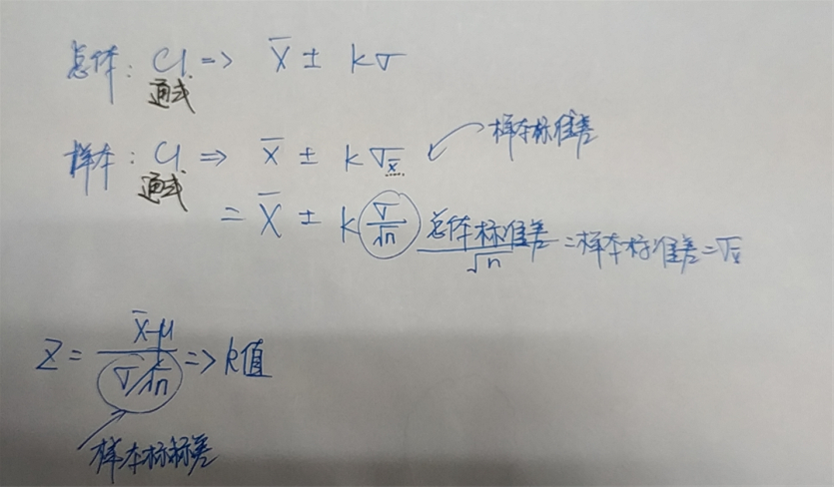 总体: CI => X̄ ± kσ
通式
样本标准差
样本: CI => x̄ ± kσx̄
通式
= X̄ ± k σ/√n 总体标准差/√n =样本标准差=σx̄
Z = x̄-μ / σ/√n => k值
样本标标差